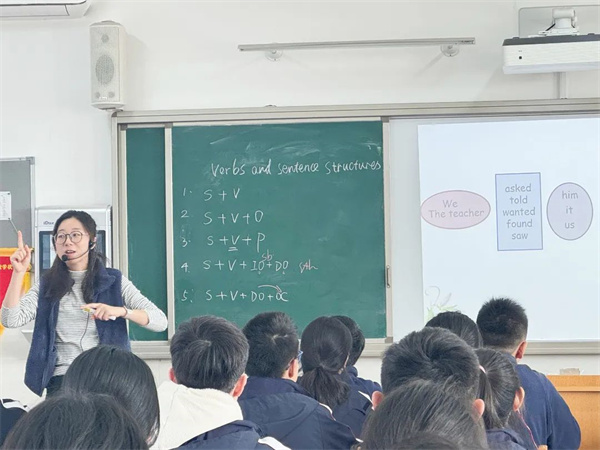 Verbs and sentence structures
1. S+V
2 S+V+O
3. S+V+P
sb
4. S+V+IO+DO sth
5. S+V+DO+OC
We
The teacher
asked
told
wanted
found
saw
him
it
us